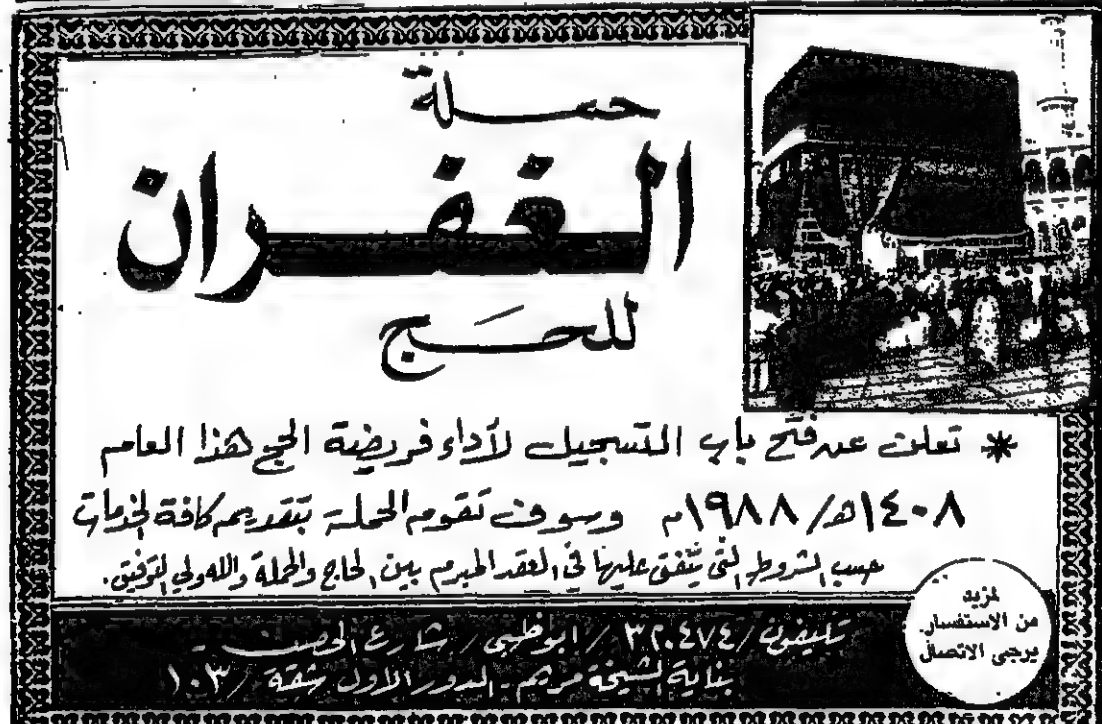 حملة
الغفران
للحج
* تعلن عن فتح باب التسجيل لأداء فريضة الحج هذا العام
١٤٠٨هـ/١٩٨٨م وسوف تقوم الحملة بتقديم كافة الخدمات
حسب الشروط التي يتفق عليها في العقد المبرم بين الحاج والحملة والله ولي التوفيق.
لمزيد
من الاستفسار
يرجى الاتصال
تليفون/٣٢٠٤٧٤/ابوظبي/شارع الحصن -
بناية الشيخة مريم - الدور الأول شقة/١٠٣